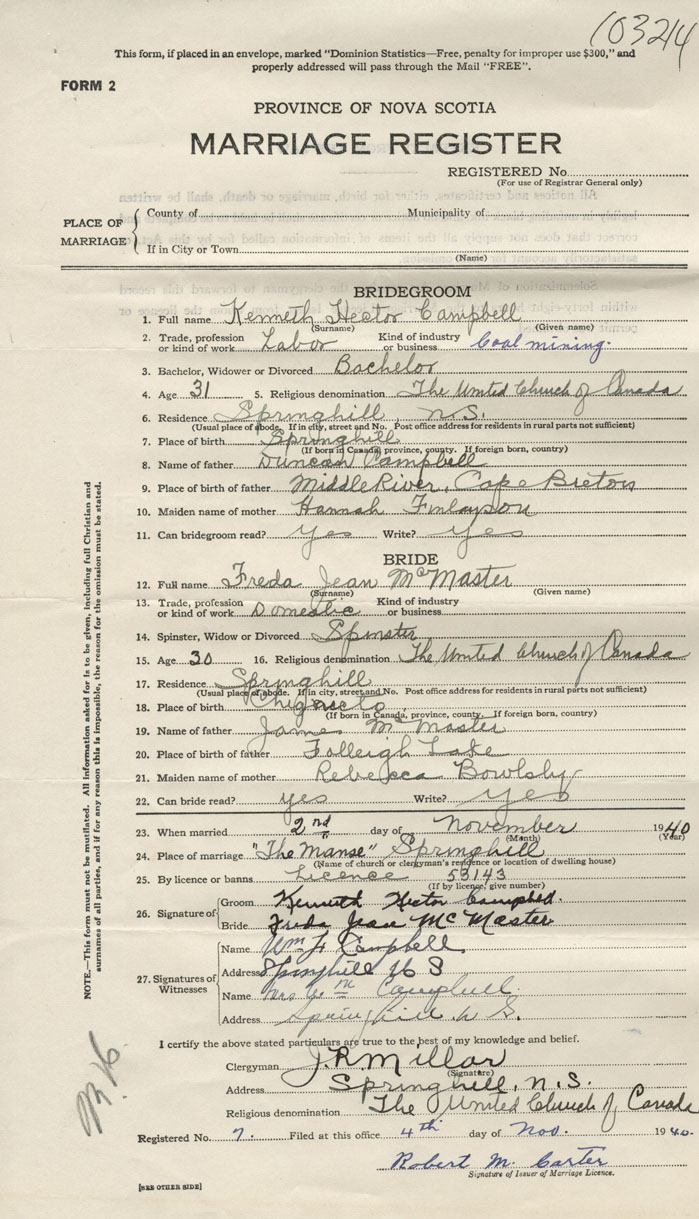 103214
This form, if placed in an envelope, marked "Dominion Statistics—Free, penalty for improper use $300," and
properly addressed will pass through the Mail "FREE".
FORM 2
PROVINCE OF NOVA SCOTIA
MARRIAGE REGISTER
REGISTERED No.
(For use of Registrar General only)
PLACE OF MARRIAGE
County of Municipality of
If in City or Town
(Name)
BRIDEGROOM
1. Full name Kenneth Hector Campbell
(Surname) (Given name)
2. Trade, profession or kind of work Labor Kind of industry or business Coal mining.
3. Bachelor, Widower or Divorced Bachelor
4. Age 31 5. Religious denomination The United Church of Canada
6. Residence Springhill N.S.
(Usual place of abode. If in city, street and No. Post office address for residents in rural parts not sufficient)
7. Place of birth Springhill
(If born in Canada, province, county. If foreign born, country)
8. Name of father Duncan Campbell
9. Place of birth of father Middle River, Cape Breton
10. Maiden name of mother Hannah Finlayson
11. Can bridegroom read? yes Write? yes
BRIDE
12. Full name Freda Jean McMaster
(Surname) (Given name)
13. Trade, profession or kind of work Domestic Kind of industry or business
14. Spinster, Widow or Divorced Spinster
15. Age 30 16. Religious denomination The United Church of Canada
17. Residence Springhill
(Usual place of abode. If in city, street and No. Post office address for residents in rural parts not sufficient)
18. Place of birth
(If born in Canada, province, county. If foreign born, country)
19. Name of father James McMaster
20. Place of birth of father Folleigh Lake
21. Maiden name of mother Rebecca Bowlsby
22. Can bride read? yes Write? yes
23. When married 2nd day of November 1940
(Month) (Year)
24. Place of marriage "The Manse" Springhill
(Name of church or clergyman's residence or location of dwelling house)
25. By licence or banns Licence 53143
(If by licence, give number)
26. Signature of
Groom Kenneth Hector Campbell.
Bride Freda Jean McMaster
27. Signatures of Witnesses
Name Wm F Campbell
Address Springhill N S
Name Mrs Wm Campbell.
Address Springhill N S.
I certify the above stated particulars are true to the best of my knowledge and belief.
Clergyman J.R. Millar
(Signature)
Address Springhill, N.S.
Religious denomination The United Church of Canada
Registered No. 7. Filed at this office 4th day of Nov. 1940.
Robert M. Carter
Signature of Issuer of Marriage Licence.
[SEE OTHER SIDE]
NOTE.—This form must not be mutilated. All information asked for is to be given, including full Christian and
surnames of all parties, and if for any reason this is impossible, the reason for the omission must be stated.